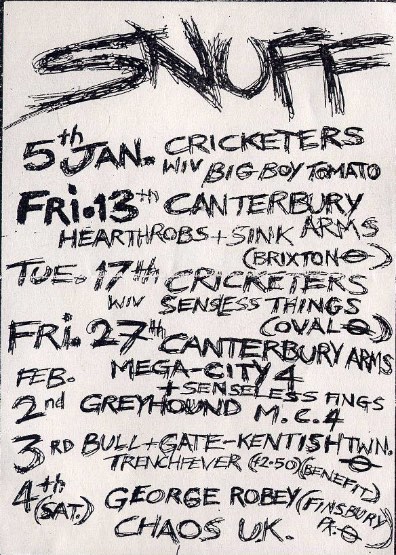 SNUFF
5th JAN. CRICKETERS
WIV BIG BOY TOMATO
FRi.13th CANTERBURY
ARMS
HEARTHROBS + SINK
(BRIXTON ⊖)
TUE. 17th CRICKETERS
WIV SENSLESS THINGS
(OVAL ⊖)
FRi. 27th CANTERBURY ARMS
MEGA-CITY 4
+ SENSELESS FINGS
FEB.
2nd GREYHOUND M.C.4
3RD BULL + GATE - KENTISH TWN. ⊖
TRENCHFEVER (£2.50) (BENEFIT)
4th (SAT.) GEORGE ROBEY (FINSBURY PK. ⊖)
CHAOS U.K.